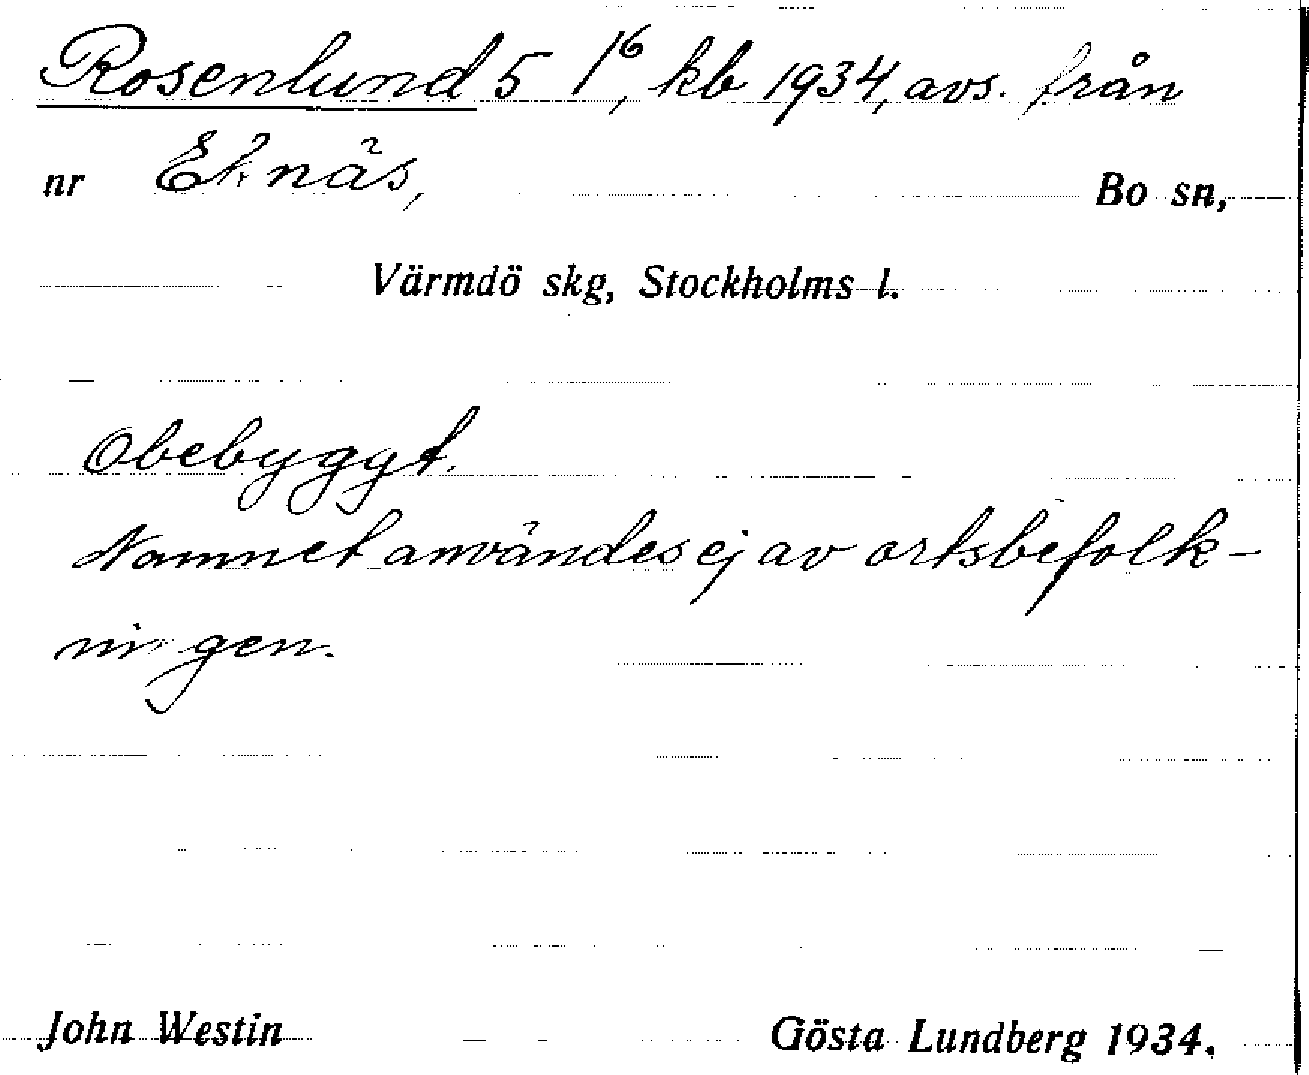 Rosenlund 5 1⁶, kb 1934, avs. från
nr Eknäs, Bo sn,
Värmdö skg, Stockholms l.
Obebyggt.
Namnet användes ej av ortsbefolk-
ningen.
John Westin Gösta Lundberg 1934.